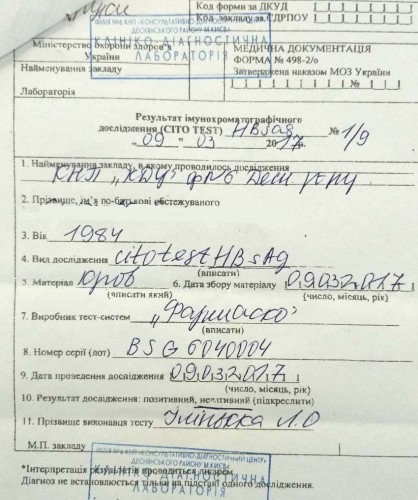 Код форми за ДКУД
Код закладу за ЄДРПОУ
ФІЛІЯ №6 КНП «КОНСУЛЬТАТИВНО-ДІАГНОСТИЧНИЙ
ДЕСНЯНСЬКОГО РАЙОНУ М.КИЄВА
КЛІНІКО-ДІАГНОСТИЧНА
ЛАБОРАТОРІЯ
Міністерство охорони здоров'я
України
Найменування закладу
Лабораторія
МЕДИЧНА ДОКУМЕНТАЦІЯ
ФОРМА № 498-2/о
Затверджена наказом МОЗ України
№
Результат імунохроматографічного
дослідження (CITO TEST) HBsAg № 1/9
„09 " 03 2017.
1. Найменування закладу, в якому проводилось дослідження
КНП „КДЦ" ф№6 Десн р-ну
2. Прізвище, ім'я по-батькові обстежуваного
3. Вік 1984
4. Вид дослідження citotest HBsAg
(вписати)
5. Матеріал кров 6. Дата збору матеріалу 09032017
(вписати який) (число, місяць, рік)
7. Виробник тест-систем „Фармаско"
(вписати)
8. Номер серії (лот) BSG 6040004
9. Дата проведення дослідження 09032017
(число, місяць, рік)
10. Результат дослідження: позитивний, негативний (підкреслити)
11. Прізвище виконавця тесту Л.О
М.П. закладу
ФІЛІЯ №6 КНП «КОНСУЛЬТАТИВНО-ДІАГНОСТИЧНИЙ ЦЕНТР»
ДЕСНЯНСЬКОГО РАЙОНУ М.КИЄВА
*Інтерпретація результатів проводиться лікарем.
Діагноз не встановлюється тільки на підставі одного дослідження.
КЛІНІКО-ДІАГНОСТИЧНА
ЛАБОРАТОРІЯ